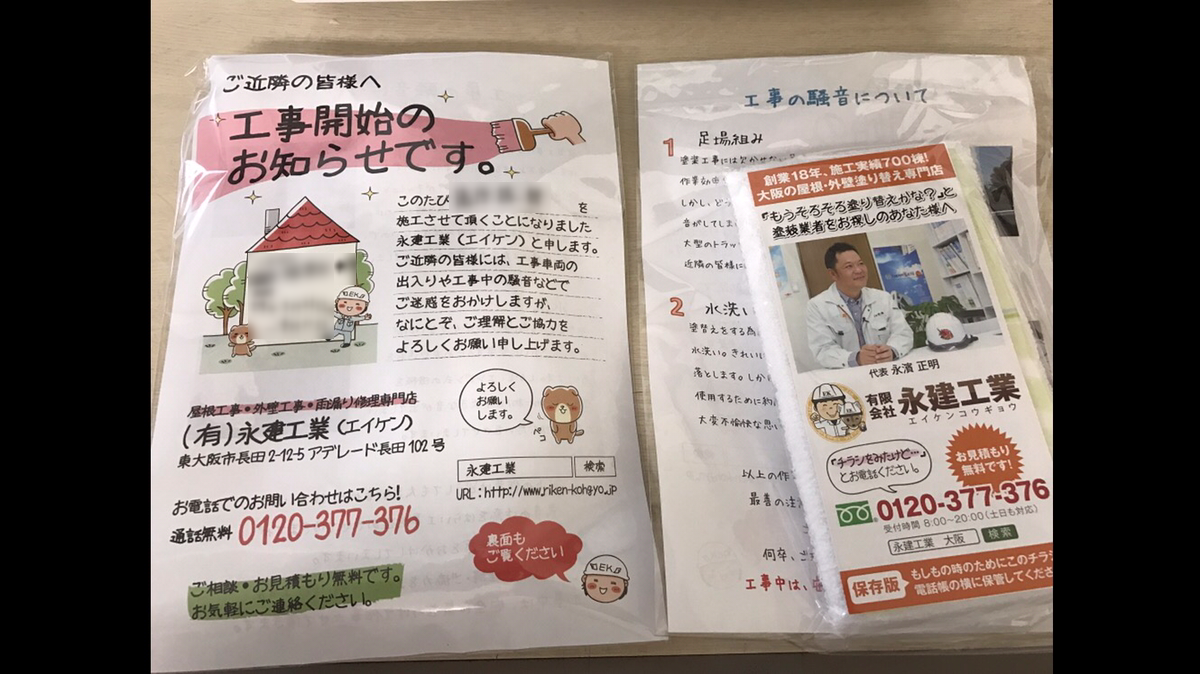 ご近隣の皆様へ
工事開始の
お知らせです。
このたび
を
施工させて頂くことになりました
永建工業（エイケン）と申します。
ご近隣の皆様には、工事車両の
出入りや工事中の騒音などで
ご迷惑をおかけしますが、
なにとぞ、ご理解とご協力を
よろしくお願い申し上げます。
EK
よろしく
お願い
します。
ペコ
屋根工事・外壁工事・雨漏り修理専門店
（有）永建工業（エイケン）
東大阪市長田2-12-5 アデレード長田102号
永建工業 検索
URL：http://www.riken-kohgyo.jp
お電話でのお問い合わせはこちら！
通話無料 0120-377-376
裏面も
ご覧ください
EK
ご相談・お見積もり無料です。
お気軽にご連絡ください。
工事の騒音について
1 足場組み
塗装工事には欠かせない
作業効率
しかし、どう
音がしてしま
大型のトラッ
近隣の皆様に
2 水洗い
塗替えをする為
水洗い。きれい
落とします。しか
使用するために約
大変不愉快な思い
以上の作
最善の注
何卒、ご
工事中は、
創業18年、施工実績700棟！
大阪の屋根・外壁塗り替え専門店
「もうそろそろ塗り替えかな？」と
塗装業者をお探しのあなた様へ
代表 永濱 正明
有限会社 永建工業
エイケンコウギョウ
「チラシをみたけど…」
とお電話ください。
お見積もり
無料です！
0120-377-376
受付時間 8:00～20:00（土日も対応）
永建工業 大阪 検索
保存版
もしもの時のためにこのチラシ
電話帳の横に保管してくださ